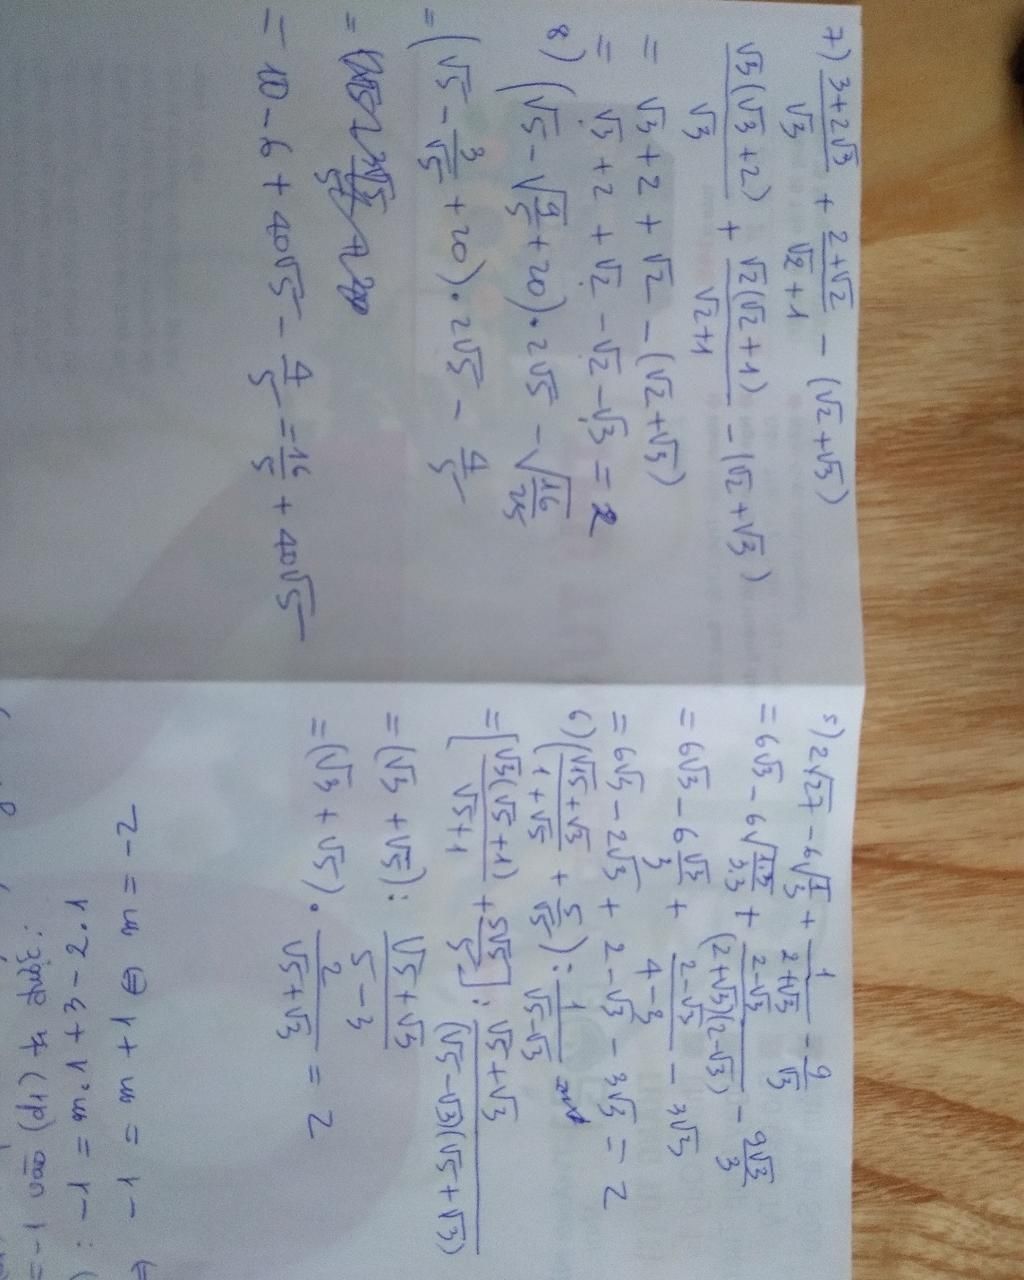 7) (3+2√3)/√3 + (2+√2)/(√2+1) − (√2+√3)
√3(√3+2)/√3 + √2(√2+1)/(√2+1) − (√2+√3)
= √3+2 + √2 − (√2+√3)
= √3+2 + √2 − √2 − √3 = 2
8) (√5 − √(9/5) + 20) . 2√5 − √(16/25)
= (√5 − 3/√5 + 20) . 2√5 − 4/5
= 10 − 6 + 40√5 − 4/5 = 16/5 + 40√5
5) 2√27 − 6√(1/3) + 1/(2+√3) − 9/√3
= 6√3 − 6√(1.3/3.3) + (2−√3)/((2+√3)(2−√3)) − 9√3/3
= 6√3 − 6 √3/3 + (2−√3)/(4−3) − 3√3
= 6√3 − 2√3 + 2 − √3 − 3√3 = 2
6) ((√15+√3)/(1+√5) + 5/√5) : 1/(√5−√3)
= [√3(√5+1)/(√5+1) + 5√5/5] : (√5+√3)/((√5−√3)(√5+√3))
= (√3+√5) : (√5+√3)/(5−3)
= (√3+√5) . 2/(√5+√3) = 2
⇔ −1 = m+1 ⇔ m = −2
) : −1 = m.1 + 3 − 2.1
= −1 vào (d1) ta được: